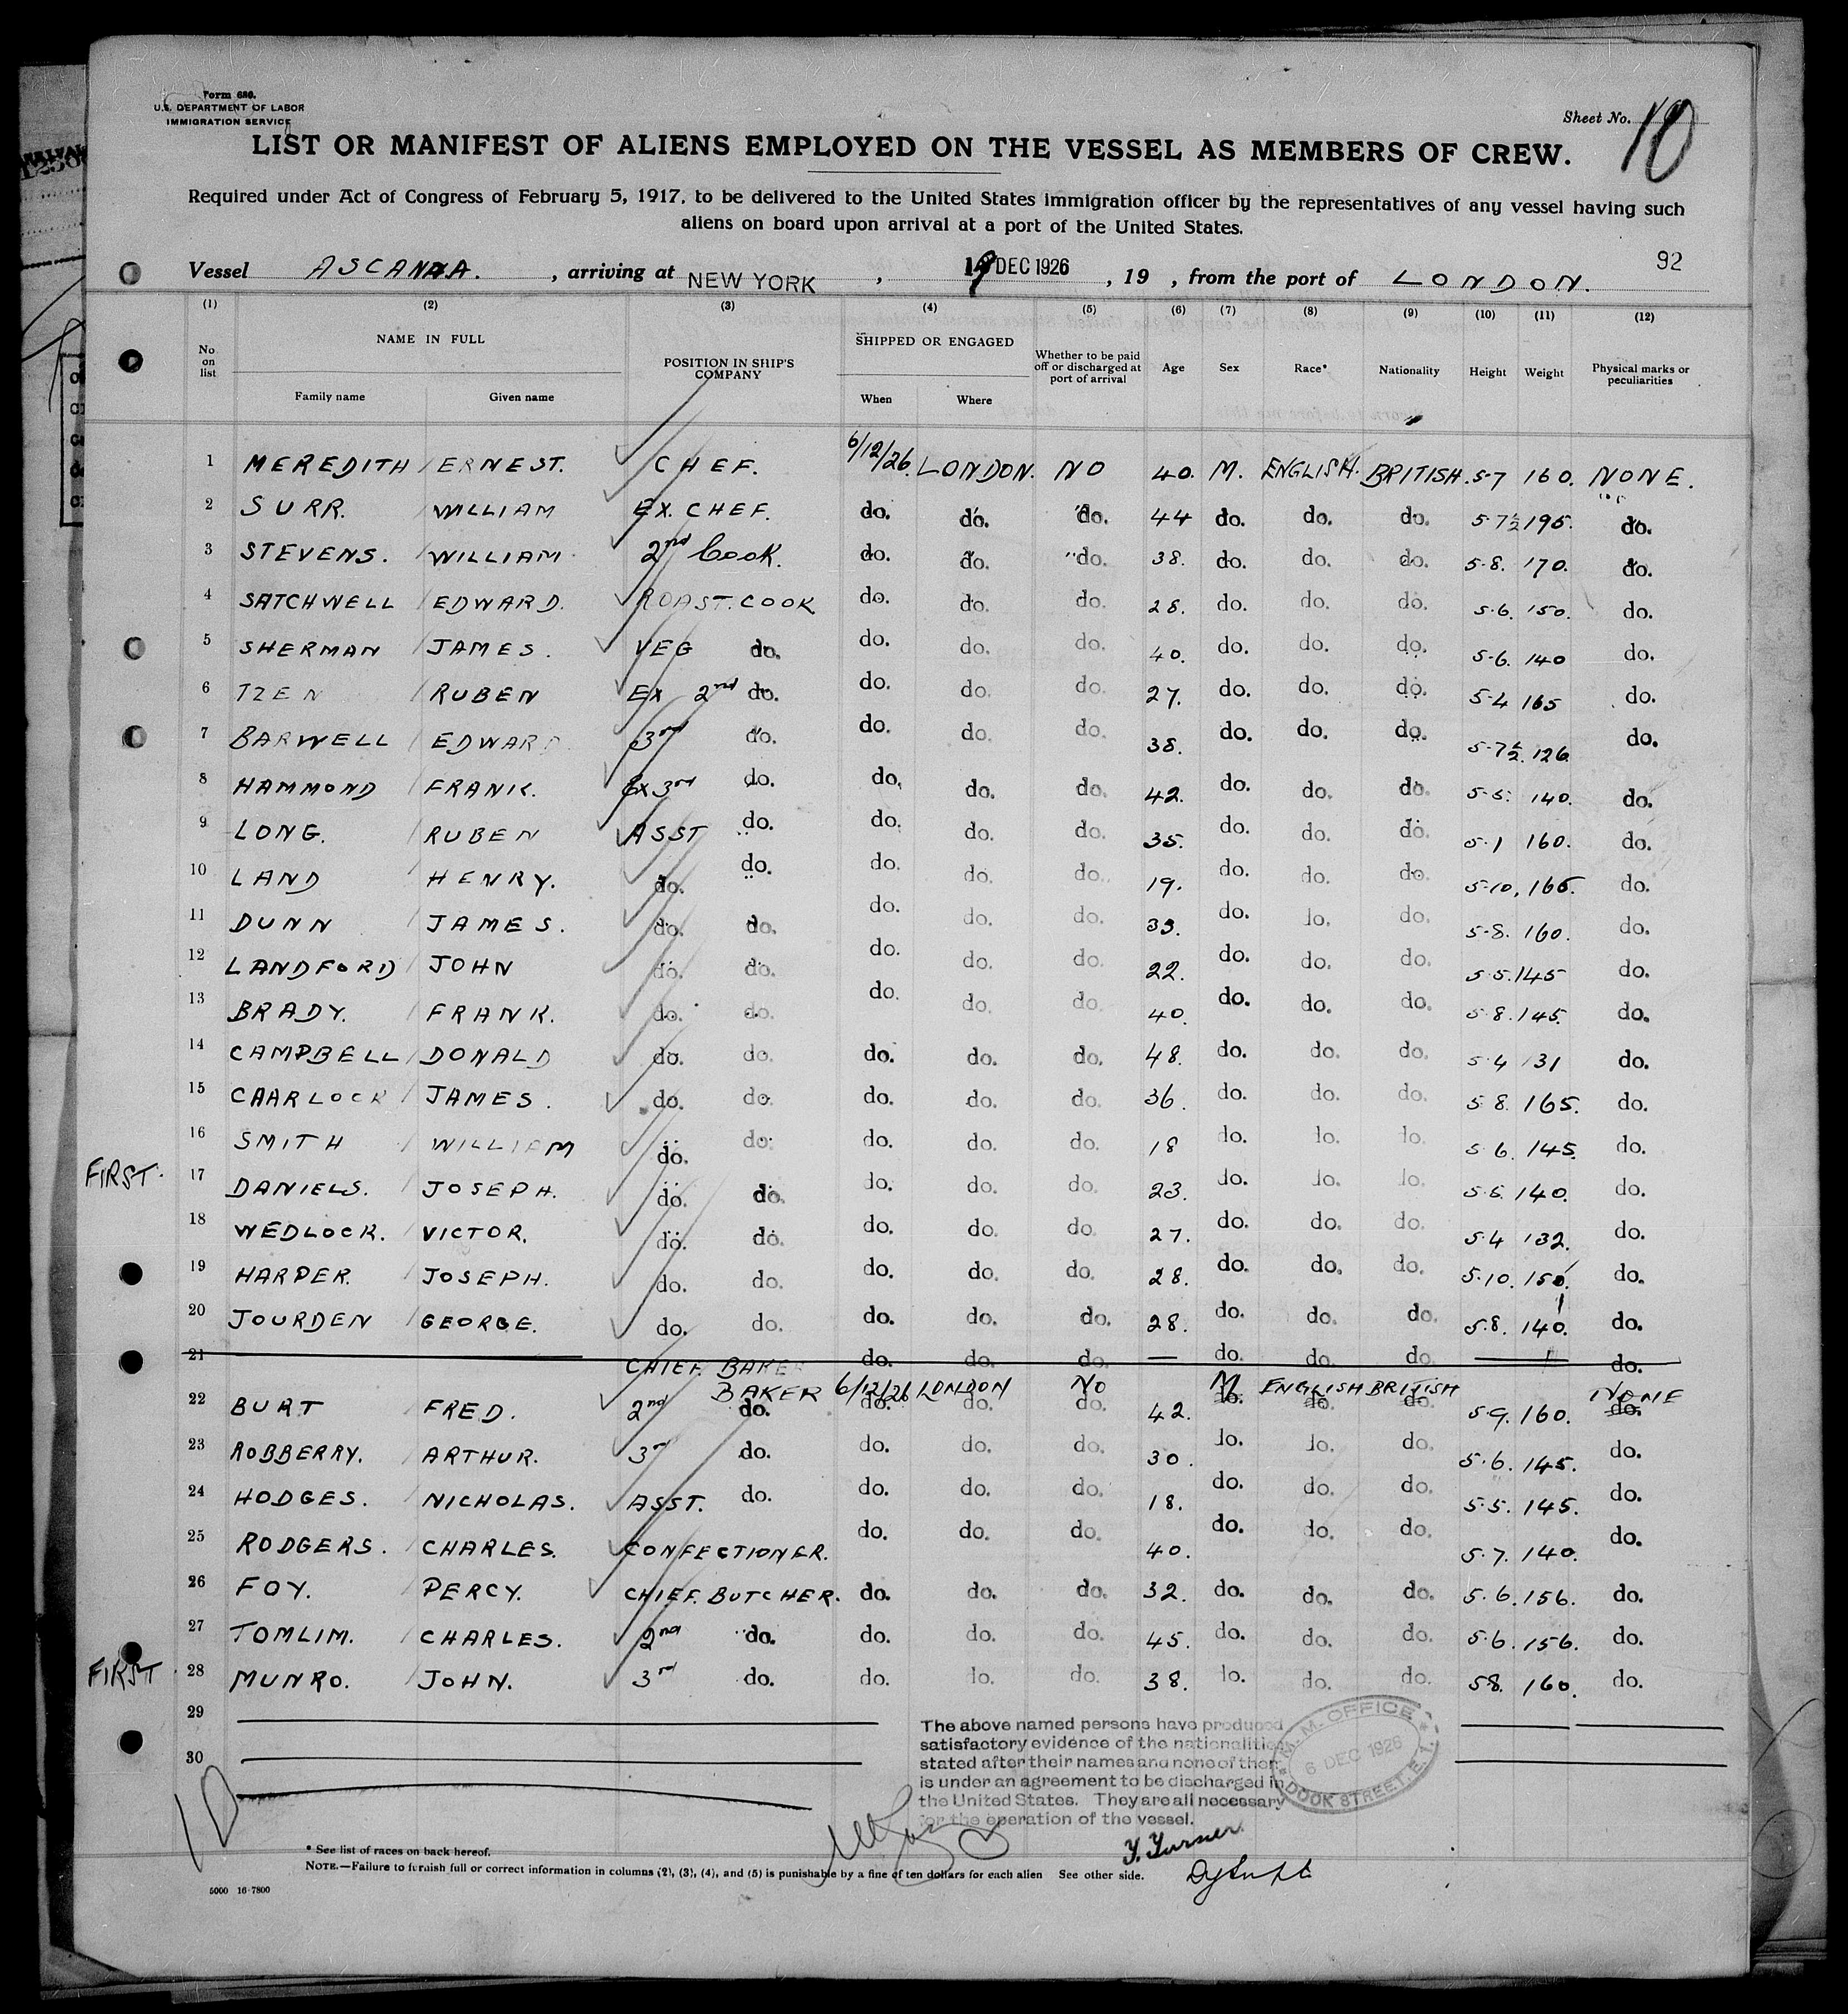 Form 686.
U.S. DEPARTMENT OF LABOR
IMMIGRATION SERVICE
Sheet No. 10
LIST OR MANIFEST OF ALIENS EMPLOYED ON THE VESSEL AS MEMBERS OF CREW.
Required under Act of Congress of February 5, 1917, to be delivered to the United States immigration officer by the representatives of any vessel having such
aliens on board upon arrival at a port of the United States.
92
Vessel ASCANIA. , arriving at NEW YORK , DEC 1926 , 19 , from the port of LONDON.
(1) (2) (3) (4) (5) (6) (7) (8) (9) (10) (11) (12)
No on list NAME IN FULL Family name Given name POSITION IN SHIP'S COMPANY SHIPPED OR ENGAGED When Where Whether to be paid off or discharged at port of arrival Age Sex Race* Nationality Height Weight Physical marks or peculiarities
1 MEREDITH ERNEST. CHEF. 6/12/26 LONDON. NO 40. M. ENGLISH. BRITISH. 5-7 160. NONE.
2 SURR. WILLIAM EX. CHEF. do. do. do. 44 do. do. do. 5-7½ 195. do.
3 STEVENS. WILLIAM 2nd Cook. do. do. do. 38. do. do. do. 5-8. 170. do.
4 SATCHWELL EDWARD. ROAST. COOK do. do. do. 28. do. do. do. 5-6. 150. do.
5 SHERMAN JAMES. VEG do. do. do. do. 40. do. do. do. 5-6. 140 do.
6 IZEN RUBEN EX 2nd do. do. do. do. 27. do. do. do. 5-4 165 do.
7 BARWELL EDWARD 3rd do. do. do. do. 38. do. do. do. 5-7½. 126 do.
8 HAMMOND FRANK. Ex 3rd do. do. do. do. 42. do. do. do. 5-5. 140. do.
9 LONG. RUBEN ASST do. do. do. do. 35. do. do. do. 5-1 160. do.
10 LAND HENRY. do. do. do. do. do. 19. do. do. do. 5-10, 165. do.
11 DUNN JAMES. do. do. do. do. do. 33. do. do. do. 5-8. 160. do.
12 LANDFORD JOHN do. do. do. do. do. 22. do. do. do. 5-5. 145 do.
13 BRADY. FRANK. do. do. do. do. do. 40. do. do. do. 5-8. 145. do.
14 CAMPBELL DONALD do. do. do. do. do. 48. do. do. do. 5-4 131 do.
15 CAARLOCK JAMES. do. do. do. do. do. 36. do. do. do. 5 8. 165. do.
16 SMITH WILLIAM do. do. do. do. do. 18 do. do. do. 5 6. 145. do.
FIRST. 17 DANIELS. JOSEPH. do. do. do. do. do. 23. do. do. do. 140. do.
18 WEDLOCK. VICTOR. do. do. do. do. do. 27. do. do. do. 5-4 132. do.
19 HARPER. JOSEPH. do. do. do. do. do. 28. do. do. do. 5-10. 150. do.
20 JOURDEN GEORGE. do. do. do. do. do. 28. do. do. do. 5.8. 140. do.
21 CHIEF. BAKER do. do. do. — do. do. do. — do.
22 BURT FRED. 2nd BAKER do. 6/12/26 do. LONDON do. NO do. 42. M do. ENGLISH do. BRITISH do. 5-9. 160. NONE do.
23 ROBBERRY. ARTHUR. 3rd do. do. do. do. 30. do. do. do. 5-6. 145. do.
24 HODGES. NICHOLAS. ASST. do. do. do. do. 18. do. do. do. 5-5. 145. do.
25 RODGERS. CHARLES. CONFECTIONER. do. do. do. 40. do. do. do. 5-7. 140. do.
26 FOY. PERCY. CHIEF. BUTCHER. do. do. do. 32. do. do. do. 5-6. 156. do.
27 TOMLIM. CHARLES. 2nd do. do. do. do. 45. do. do. do. 5-6. 156. do.
FIRST 28 MUNRO. JOHN. 3rd do. do. do. do. 38. do. do. do. 5 8. 160. do.
29
30
The above named persons have produced
satisfactory evidence of the nationalities
stated after their names and none of them
is under an agreement to be discharged in
the United States. They are all necessary
for the operation of the vessel.
M. M. OFFICE
6 DEC 1926
DOCK STREET, E. 1.
Y. Turner
* See list of races on back hereof.
NOTE.—Failure to furnish full or correct information in columns (2), (3), (4), and (5) is punishable by a fine of ten dollars for each alien See other side.
5000 16-7800